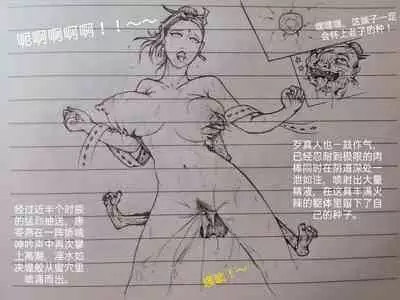 呃啊啊啊啊！！~~
嘿嘿嘿，这妹子一定
会怀上老子的种！
歹真人也一鼓作气，
已经忍耐到极限的肉
同时在阴道深处一
泄如注，喷射出大量
精液，在这具丰满火
辣的躯体里留下了自
己的种子。
经过近半个时辰
的猛烈抽送，唐
在一阵娇喘
呻吟声中再次攀
上高潮，淫水如
决堤般从蜜穴里
喷涌而出。
！~